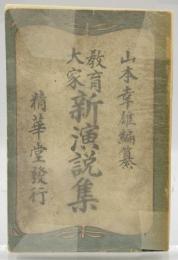 山本幸雄編纂
教育大家
新演説集
精華堂發行